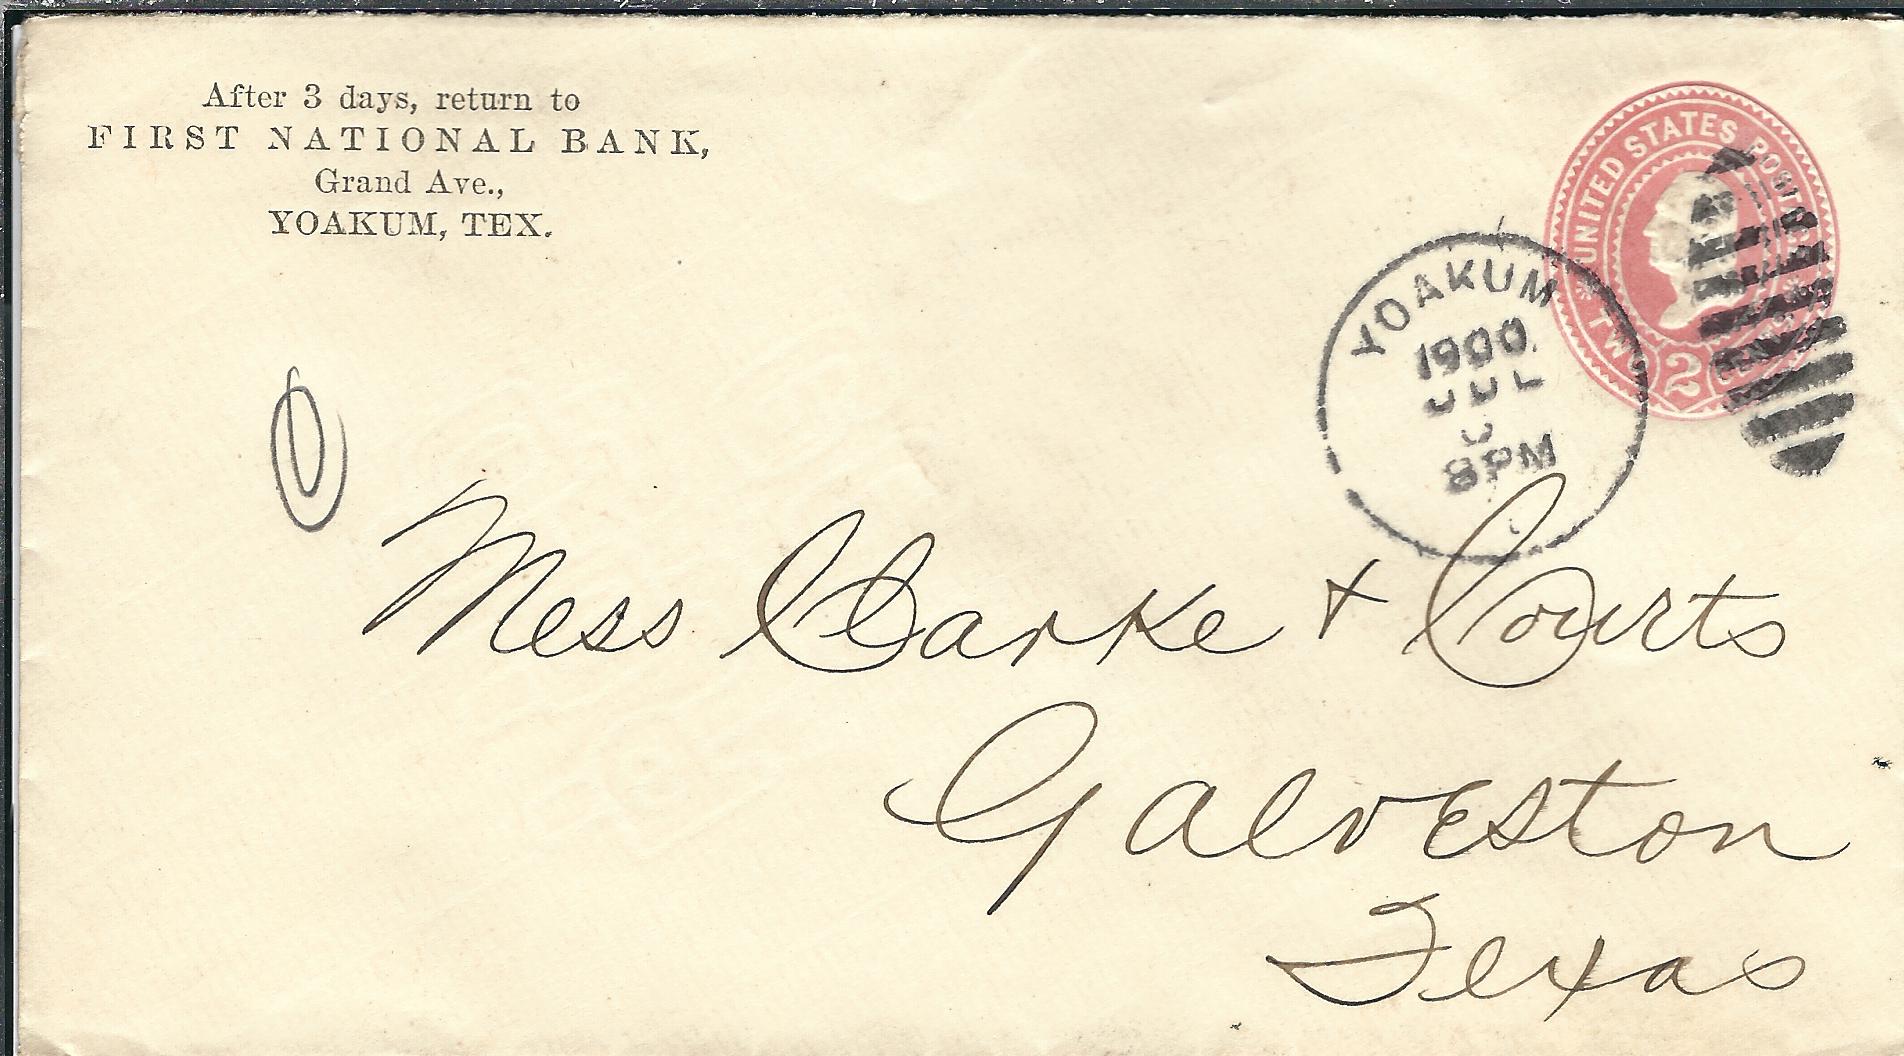 After 3 days, return to
FIRST NATIONAL BANK,
Grand Ave.,
YOAKUM, TEX.
UNITED STATES
TWO 2
YOAKUM
1900
JUL
8 PM
Mess Clarke + Courts
Galveston
Texas